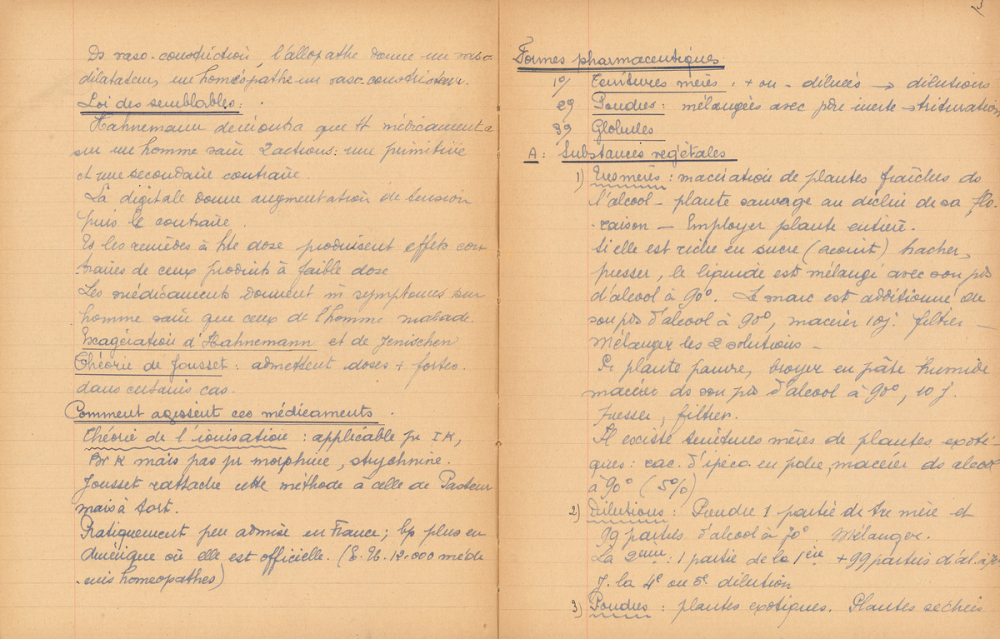 Ds vaso-constriction, l'allopathe donne un vaso-
dilatateur, un homéopathe un vaso-constricteur.
Loi des semblables :
Hahnemann démontra que tt médicament a
sur un homme sain 2 actions : une primitive
et une secondaire contraire.
La digitale donne augmentation de tension
puis le contraire.
Ts les remèdes à hte dose produisent effets con-
traires de ceux produits à faible dose
Les médicaments donnent m̄ symptomes sur
homme sain que ceux de l'homme malade.
Exagération d'Hahnemann et de Jenischen
Théorie de Jousset : admettent doses + fortes
dans certains cas.
Comment agissent ces médicaments.
Théorie de l'ionisation : applicable pr IK,
Br K mais pas pr morphine, strychnine.
Jousset rattache cette méthode à celle de Pasteur
mais à tort.
Pratiquement peu admise en France ; bp plus en
Amérique où elle est officielle. (E. U. 12.000 méde
cins homéopathes)
Formes pharmaceutiques
1º/ Teintures mères, + ou - diluées → dilutions
2º/ Poudres : mélangées avec pdre inerte → trituration
3º/ Globules
A : Substances végétales
1) Tres mères : macération de plantes fraîches ds
l'alcool - plante sauvage au déclin de sa flo-
raison - Employer plante entière.
Si elle est riche en sucre (aconit) hacher,
presser, le liquide est mélangé avec son pds
d'alcool à 90º. Le marc est additionné de
son pds d'alcool à 90º, macérer 10 j. filtrer -
Mélanger les 2 solutions -
Si plante pauvre, broyer en pâte humide
macérer ds son pds d'alcool à 90º, 10 j.
Presser, filtrer.
Il existe teintures mères de plantes exoti-
ques : rac. d'ipéca en pdre, macérer ds alcool
à 90º (5%)
2) Dilutions : Prendre 1 partie de tre mère et
99 parties d'alcool à 70º. Mélanger.
La 2ème : 1 partie de la 1ère + 99 parties d'al. à 70
J. la 4e ou 5e dilution
3) Poudres : plantes exotiques. Plantes sechées